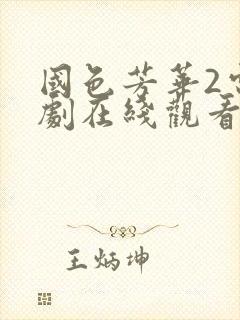 國色芳華2
劇在綫觀看
王炳坤